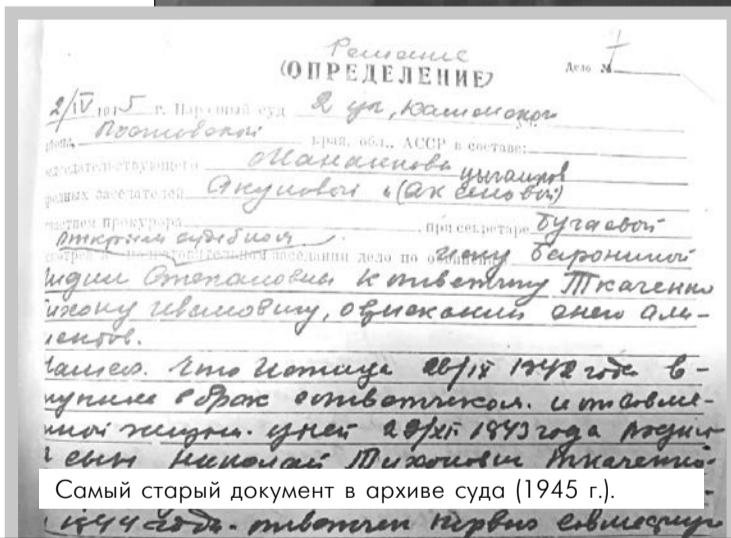 Решение
(ОПРЕДЕЛЕНИЕ)
Дело № 1
2/IV 1945 г. Народный суд 2 уч, Каменского
Ростовской края, обл., АССР в составе:
седательствующего
родных заседателей Акуловой и (Аксеновой)
частием прокурора при секретаре Бугаевой
открытом судебном
заседании дело по иску Борониной
Лидии Степановны к ответчику Ткаченко
ихону Ивановичу, о взыскании с него али-
ментов.
что Истица 26/IX 1942 года в-
ступила в брак с ответчиком. и от совме-
ной жизни. у ней 29/XI 1943 года родился
сын Николай Тихонович Ткаченко
Самый старый документ в архиве суда (1945 г.).
1944 года. ответчик